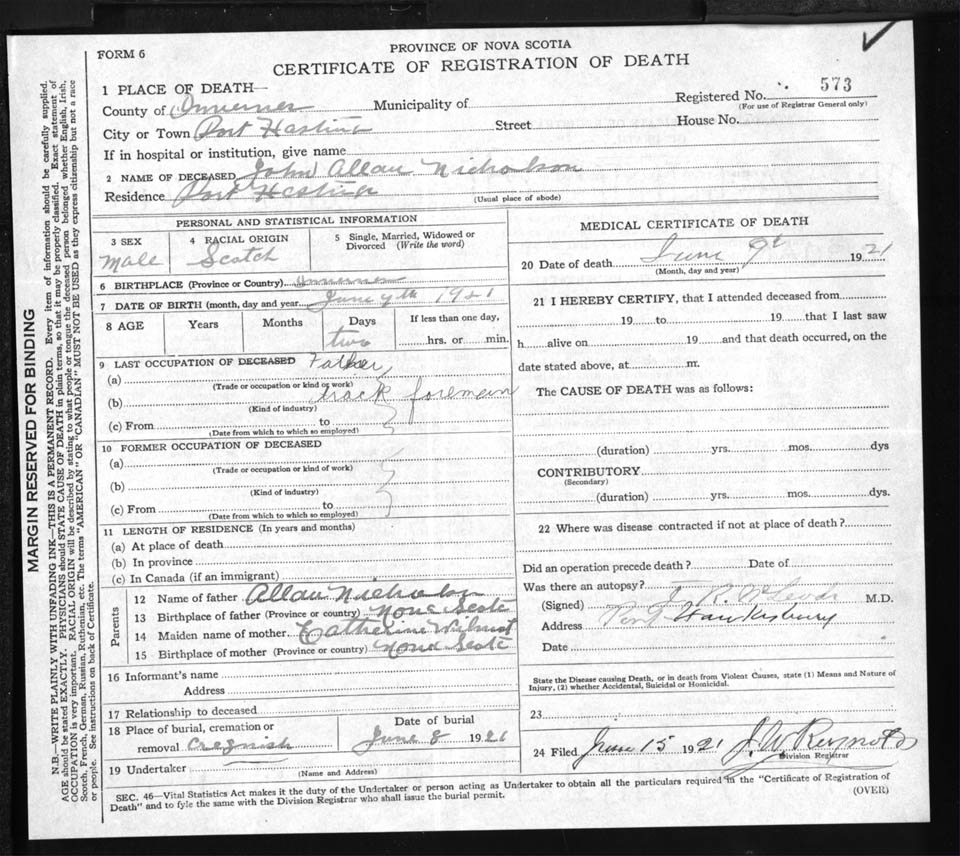 FORM 6
PROVINCE OF NOVA SCOTIA
CERTIFICATE OF REGISTRATION OF DEATH
1 PLACE OF DEATH—
Registered No. 573
(For use of Registrar General only)
County of Inverness Municipality of
City or Town Port Hastings Street House No.
If in hospital or institution, give name
2 NAME OF DECEASED John Allan Nicholson
Residence Port Hastings
(Usual place of abode)
PERSONAL AND STATISTICAL INFORMATION
3 SEX
Male
4 RACIAL ORIGIN
Scotch
5 Single, Married, Widowed or Divorced (Write the word)
6 BIRTHPLACE (Province or Country) Inverness
7 DATE OF BIRTH (month, day and year) June 7th 1921
8 AGE Years Months Days If less than one day,
two hrs. or min.
9 LAST OCCUPATION OF DECEASED Father,
(a)
(Trade or occupation or kind of work)
(b) track foreman
(Kind of industry)
(c) From to
(Date from which to which so employed)
10 FORMER OCCUPATION OF DECEASED
(a)
(Trade or occupation or kind of work)
(b)
(Kind of industry)
(c) From to
(Date from which to which so employed)
11 LENGTH OF RESIDENCE (In years and months)
(a) At place of death
(b) In province
(c) In Canada (if an immigrant)
Parents
12 Name of father Allan Nicholson
13 Birthplace of father (Province or country) Nova Scotc
14 Maiden name of mother Catherine
15 Birthplace of mother (Province or country) Nova Scotc
16 Informant's name
Address
17 Relationship to deceased
18 Place of burial, cremation or
removal Creignish
Date of burial
June 8 1921
19 Undertaker
(Name and Address)
MEDICAL CERTIFICATE OF DEATH
20 Date of death June 9t 1921
(Month, day and year)
21 I HEREBY CERTIFY, that I attended deceased from
19 to 19 that I last saw
h alive on 19 and that death occurred, on the
date stated above, at m.
The CAUSE OF DEATH was as follows:
(duration) yrs. mos. dys
CONTRIBUTORY
(Secondary)
(duration) yrs. mos. dys.
22 Where was disease contracted if not at place of death?
Did an operation precede death? Date of
Was there an autopsy?
(Signed) McLeod M.D.
Address Port Hawkesbury
Date
State the Disease causing Death, or in death from Violent Causes, state (1) Means and Nature of
Injury, (2) whether Accidental, Suicidal or Homicidal.
23
24 Filed June 15 1921 J. W. Reynolds
Division Registrar
SEC. 46—Vital Statistics Act makes it the duty of the Undertaker or person acting as Undertaker to obtain all the particulars required in the "Certificate of Registration of
Death" and to fyle the same with the Division Registrar who shall issue the burial permit.
(OVER)
MARGIN RESERVED FOR BINDING
N.B.—WRITE PLAINLY WITH UNFADING INK—THIS IS A PERMANENT RECORD. Every item of information should be carefully supplied.
AGE should be stated EXACTLY. PHYSICIANS should STATE CAUSE OF DEATH in plain terms, so that it may be properly classified. Exact statement of
OCCUPATION is very important. RACIAL ORIGIN will be described by stating to what people or tongue the deceased person belonged whether English, Irish,
Scotch, French, German, Russian, Ruthenian, etc. The terms "AMERICAN" OR "CANADIAN" MUST NOT BE USED as they express citizenship but not a race
or people. See instructions on back of Certificate.